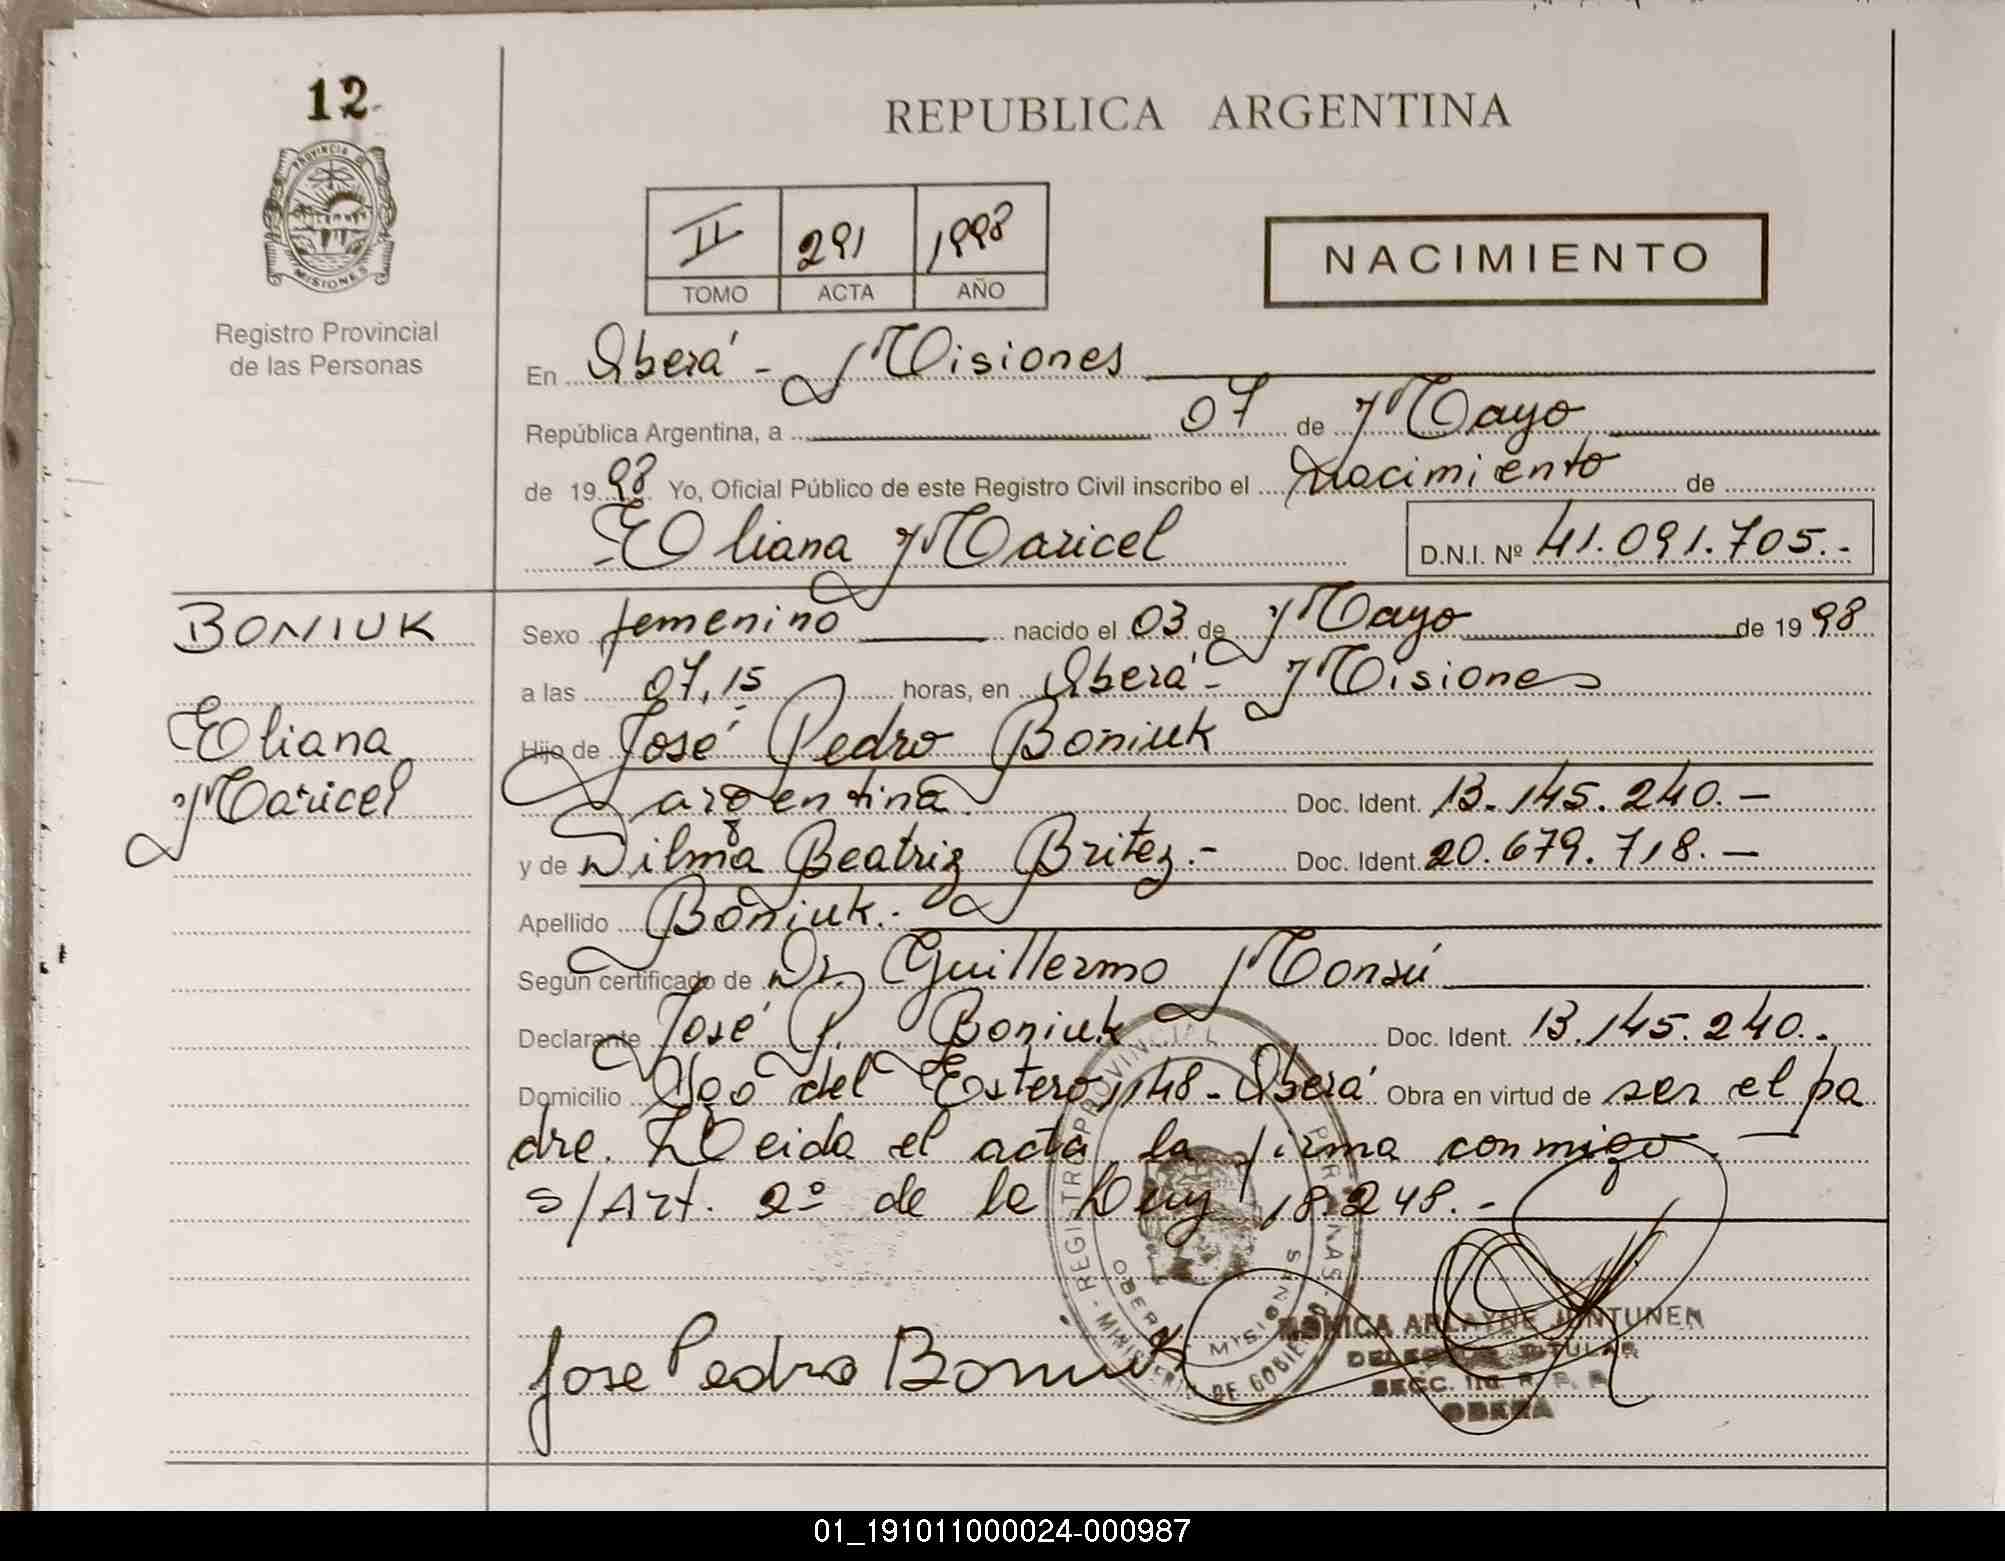 12
REPUBLICA ARGENTINA
PROVINCIA DE
MISIONES
Registro Provincial
de las Personas
II 291 1998
TOMO ACTA AÑO
NACIMIENTO
En Oberá - Misiones
República Argentina, a 07 de Mayo
de 1998 Yo, Oficial Público de este Registro Civil inscribo el nacimiento de
Eliana Maricel D.N.I. Nº 41.091.705.-
BONIUK
Eliana
Maricel
Sexo femenino nacido el 03 de Mayo de 1998
a las 07,15 horas, en Oberá - Misiones
Hijo de José Pedro Boniuk
argentina Doc. Ident. 13.145.240.-
y de Dilma Beatriz Britez.- Doc. Ident. 20.679.718.-
Apellido Boniuk.-
Según certificado de Dr. Guillermo Monsú
Declarante José P. Boniuk Doc. Ident. 13.145.240.-
Domicilio Sgo del Estero 1148 - Oberá Obra en virtud de ser el pa
dre. Leida el acta la firma conmigo
s/Art. 2º de la Ley 18.248.-
REGISTRO PROVINCIAL PERSONAS
OBERA MISIONES
MINISTERIO DE GOBIERNO
Jose Pedro Boniuk
MONICA ARLAYNE JUNTUNEN
DELEGADA TITULAR
SECC. R. P. P.
OBERA
01_191011000024-000987